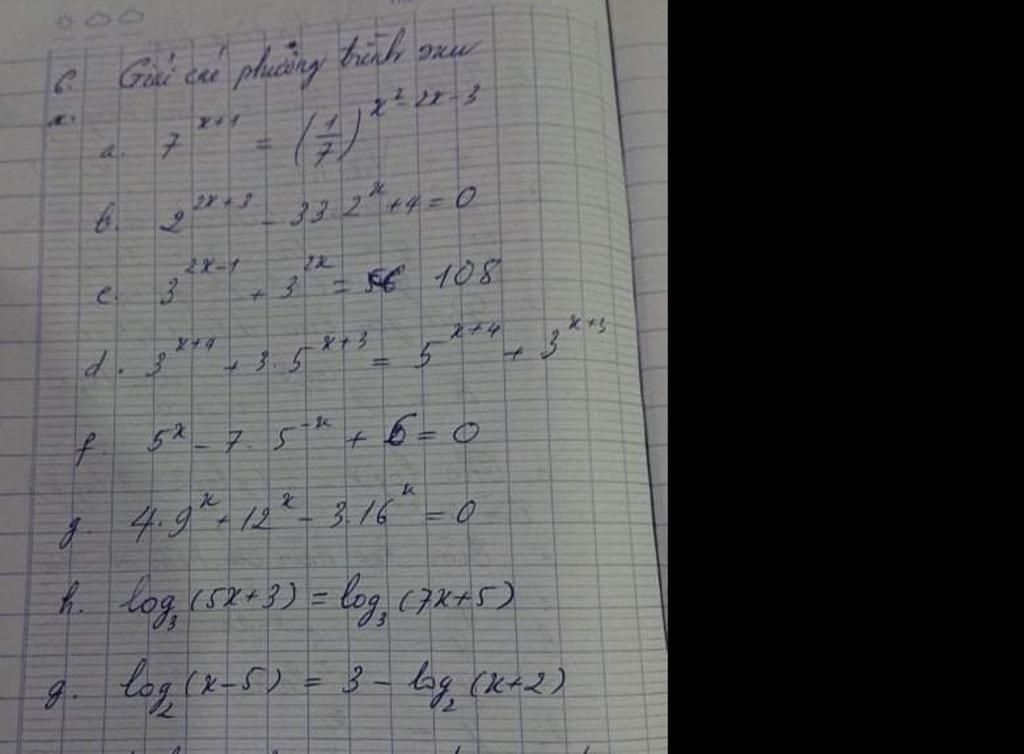 6. Giải các phương trình sau
a. 7^{x+1} = (1/7)^{x^2-2x-3}
b. 2^{2x+3} - 33.2^x + 4 = 0
c. 3^{2x-1} + 3^{2x} = 108
d. 3^{x+4} + 3.5^{x+3} = 5^{x+4} + 3^{x+3}
f. 5^x - 7.5^{-x} + 6 = 0
g. 4.9^x + 12^x - 3.16^x = 0
h. log_3(5x+3) = log_3(7x+5)
g. log_2(x-5) = 3 - log_2(x+2)